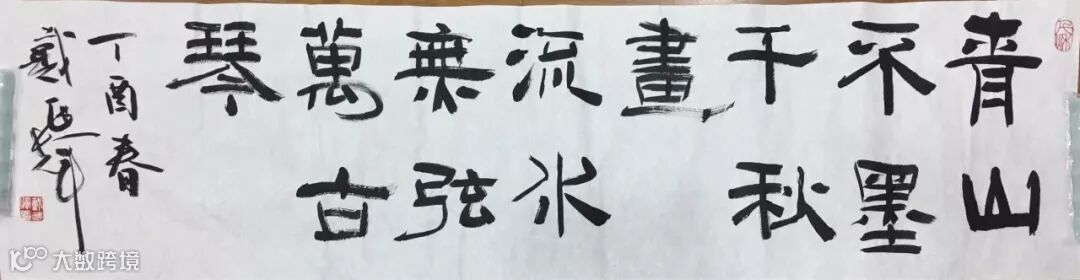 青山
不墨
千秋
畫
流水
無弦
萬古
琴
丁酉春
戴
大数跨境